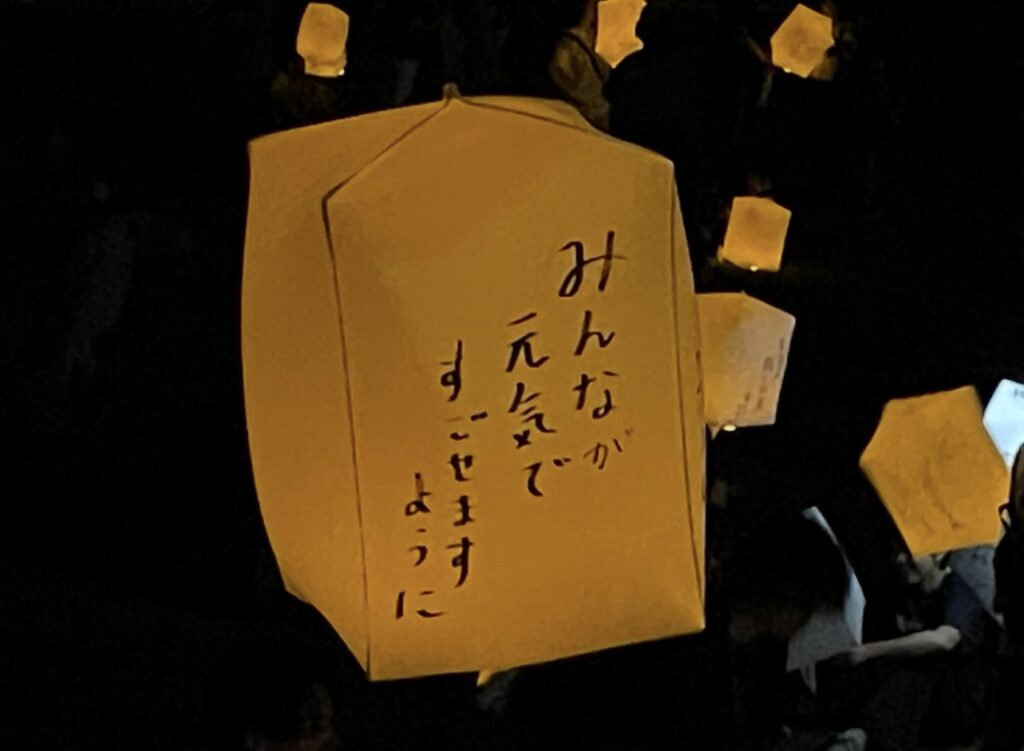 みんなが
元気で
すごせます
ように